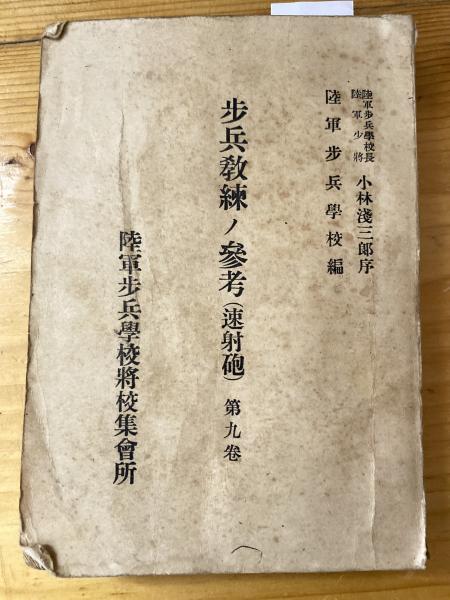 陸軍步兵學校長
陸軍少將
小林淺三郞序
陸軍步兵學校編
步兵教練ノ參考(速射砲)第九卷
陸軍步兵學校將校集會所